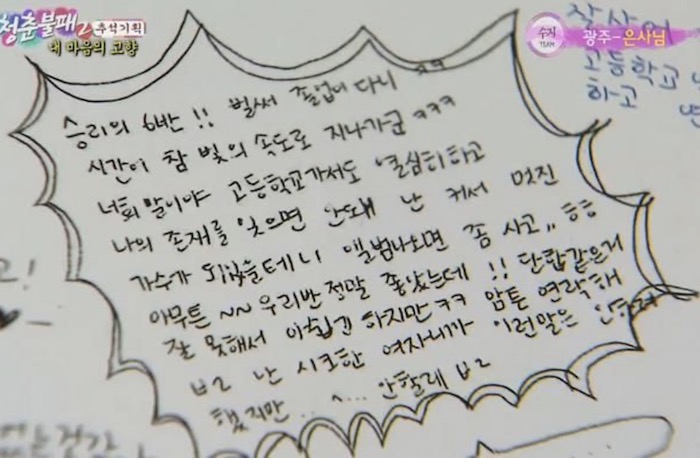 청춘불패2 추석기획
내 마음의 고향
수지
TEAM
광주-은사님
고등학교
하고
승리의 6반 !! 벌써 졸업이 다니 ㅋㅋ
시간이 참 빛의 속도로 지나가군 ㅋㅋㅋ
너희 말이야 고등학교가서도 열심히하고
나의 존재를 잊으면 안돼 난 커서 멋진
가수가 되있을테니 앨범나오면 좀 사고,, ㅎㅎ
아무튼 ~~ 우리반 정말 좋았는데 !! 단합같은거
잘 못해서 아쉽긴 하지만 ㅋㅋ 암튼 연락해
ㅂ2 난 시크한 여자니까 이런말은
했지만... ^... 안할래 ㅂ2
고!
없는건가